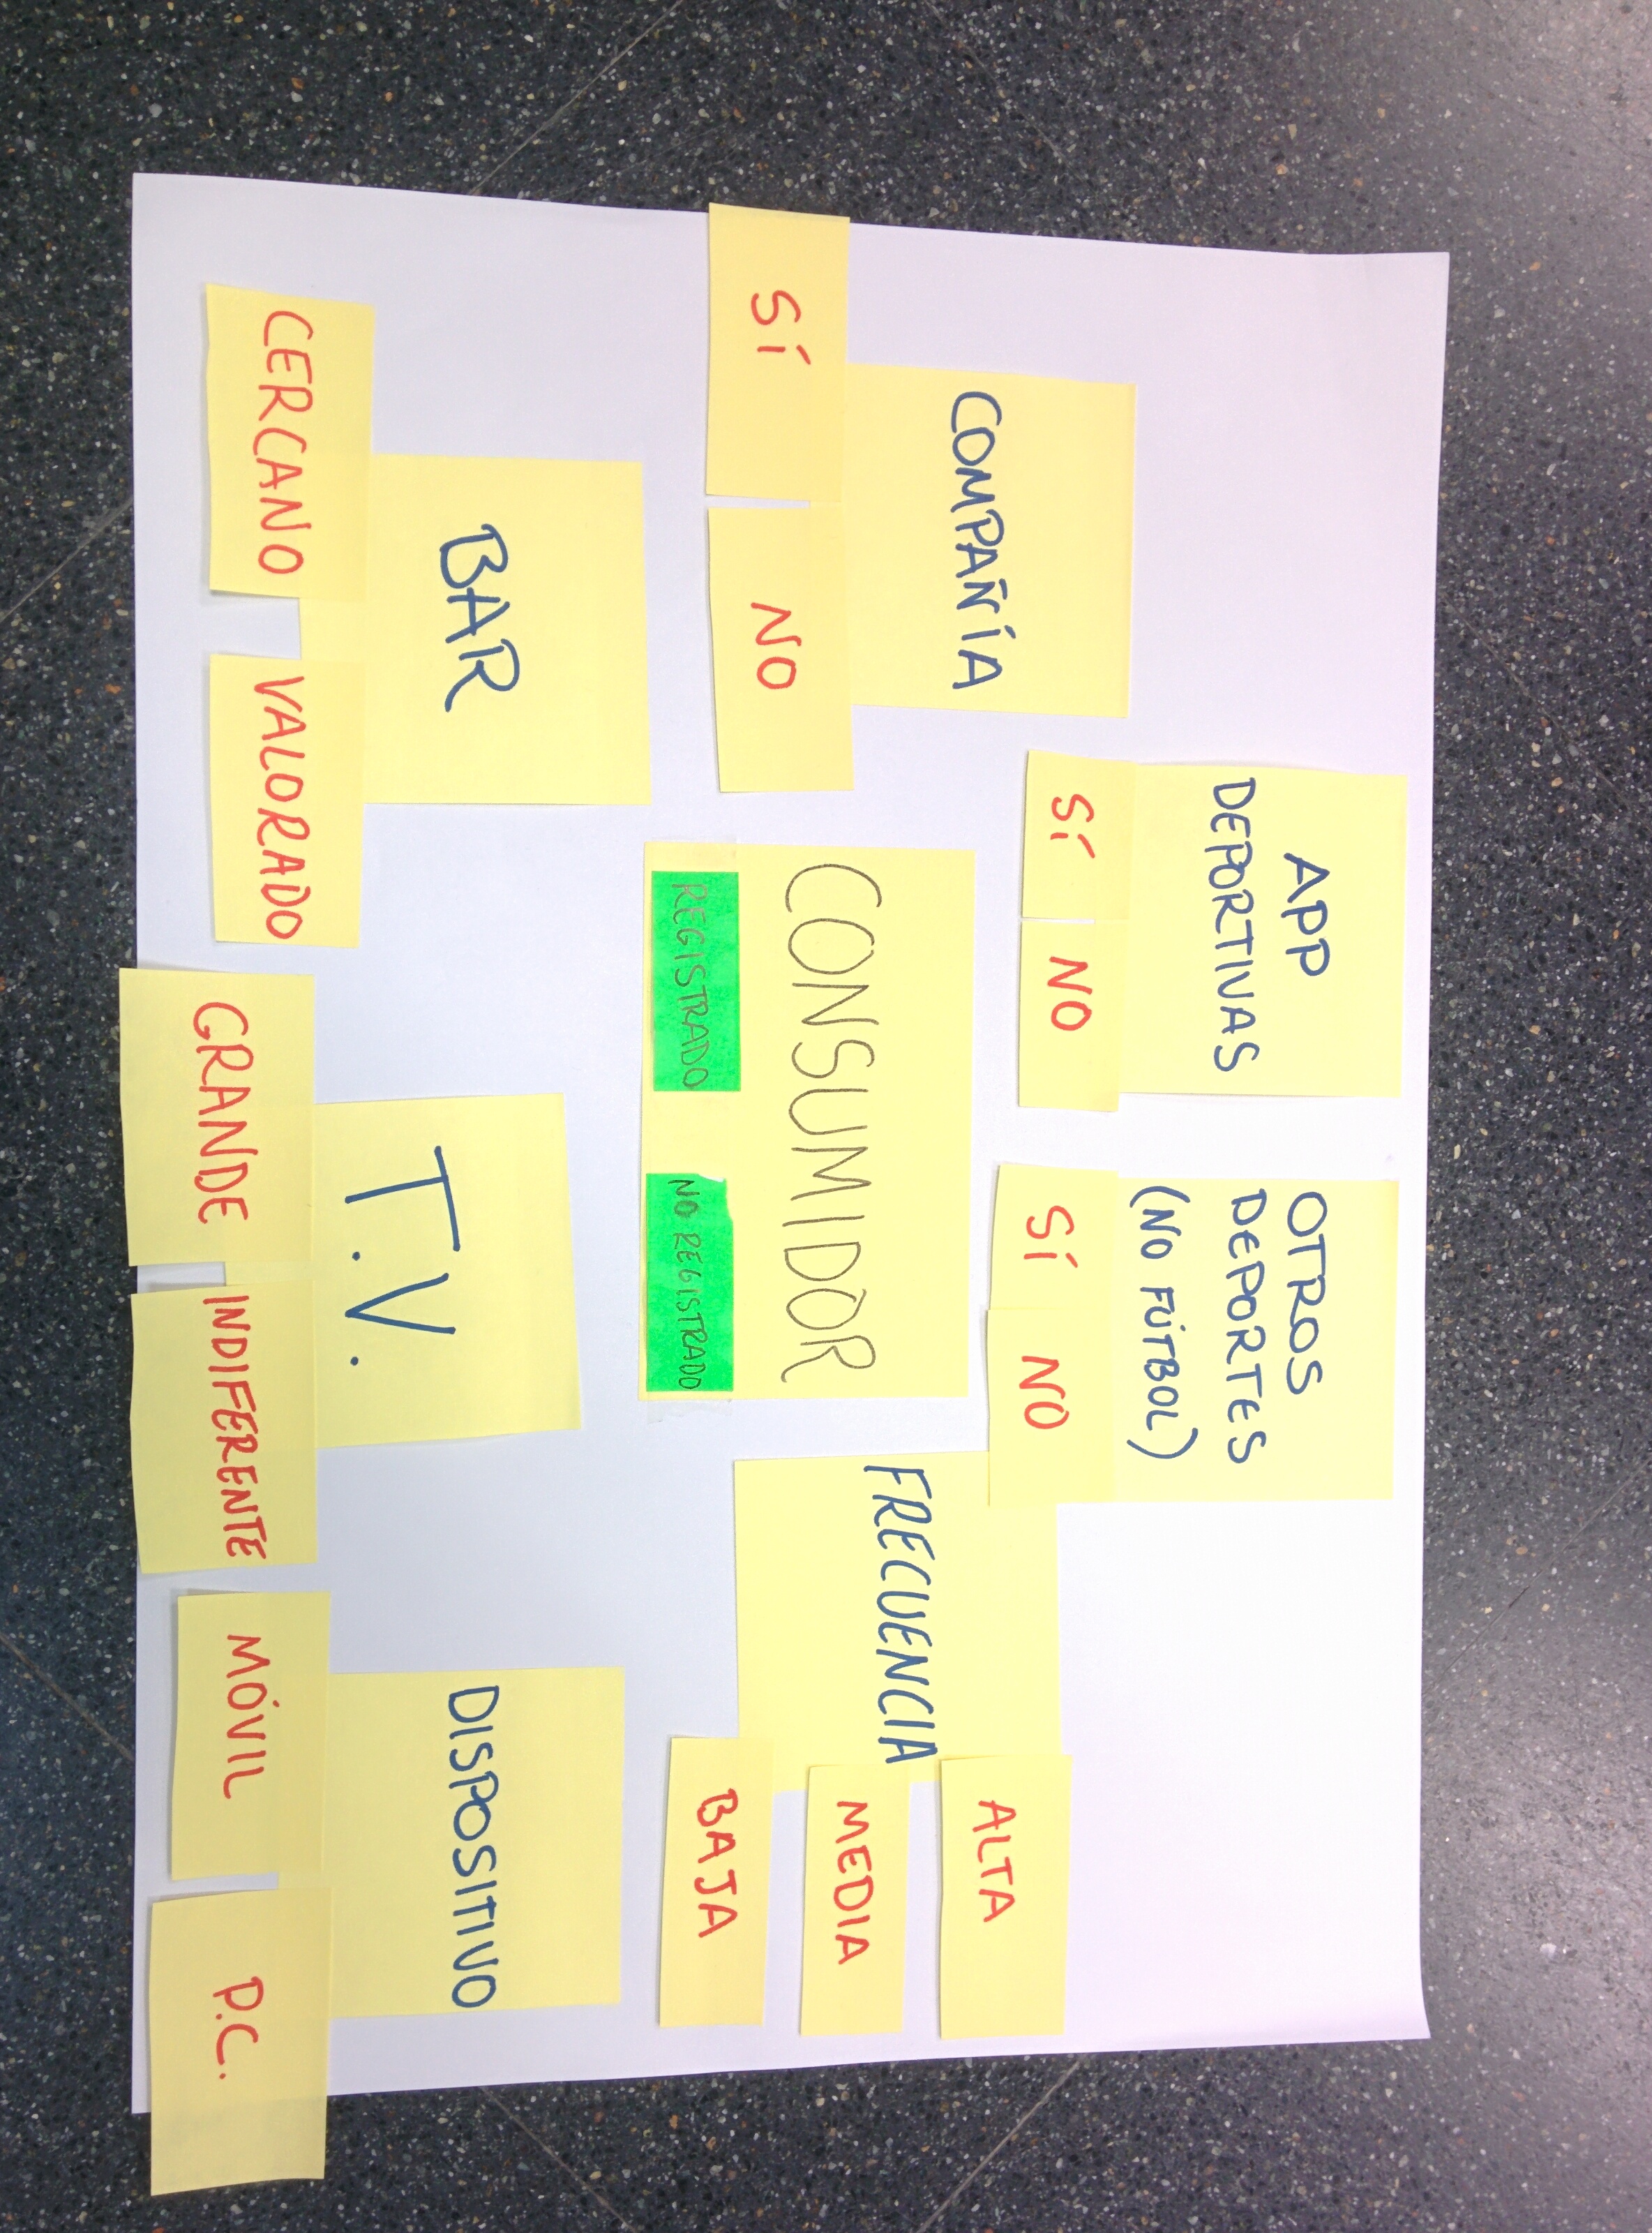 APP
DEPORTIVAS
SÍ
NO
OTROS
DEPORTES
(NO FÚTBOL)
SÍ
NO
COMPAÑÍA
SÍ
NO
CONSUMIDOR
REGISTRADO
NO REGISTRADO
FRECUENCIA
ALTA
MEDIA
BAJA
BAR
CERCANO
VALORADO
T.V.
GRANDE
INDIFERENTE
DISPOSITIVO
MÓVIL
P.C.